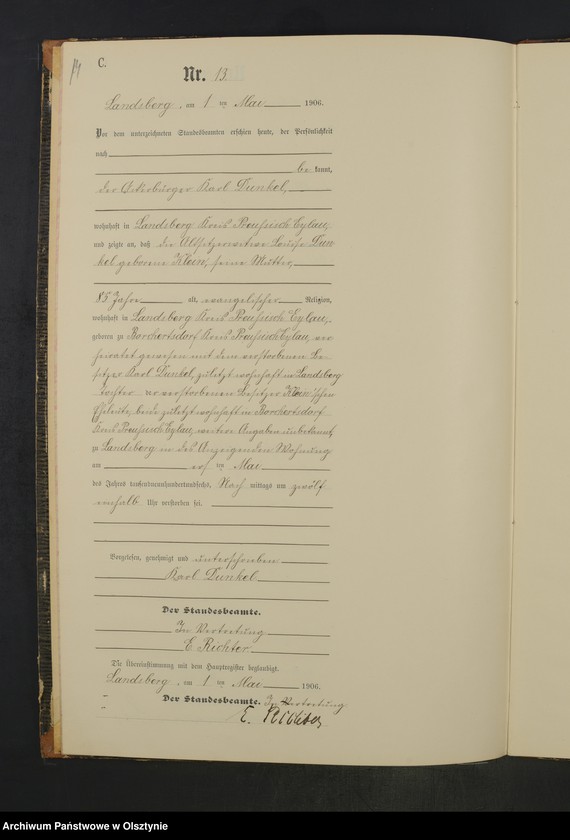 14
C.
Nr. 13.
Landsberg, am 1 ten Mai 1906.
Vor dem unterzeichneten Standesbeamten erschien heute, der Persönlichkeit
nach
be kannt,
der Ackerbürger Karl Dunkel,
wohnhaft in Landsberg Kreis Preußisch Eylau,
und zeigte an, daß die Altsitzerwitwe Louise Dun
kel geborene Klein, seine Mutter,
85 Jahre alt, evangelischer Religion,
wohnhaft in Landsberg Kreis Preußisch Eylau,
geboren zu Borchertsdorf Kreis Preußisch Eylau, ver
heiratet gewesen mit dem verstorbenen Be
sitzer Karl Dunkel, zuletzt wohnhaft in Landsberg
Tochter der verstorbenen Besitzer Klein'schen
Eheleute, beide zuletzt wohnhaft in Borchertsdorf
Kreis Preußisch Eylau, weitere Angaben unbekannt,
zu Landsberg in des Anzeigenden Wohnung
am ten Mai
des Jahres tausendneunhundertundsechs, Nach mittags um zwölf
einhalb Uhr verstorben sei.
Vorgelesen, genehmigt und unterschrieben
Karl Dunkel
Der Standesbeamte.
In Vertretung
E. Richter.
Die Übereinstimmung mit dem Hauptregister beglaubigt.
Landsberg, am 1 ten Mai 1906.
Der Standesbeamte. In Vertretung
E. Richter
Archiwum Państwowe w Olsztynie